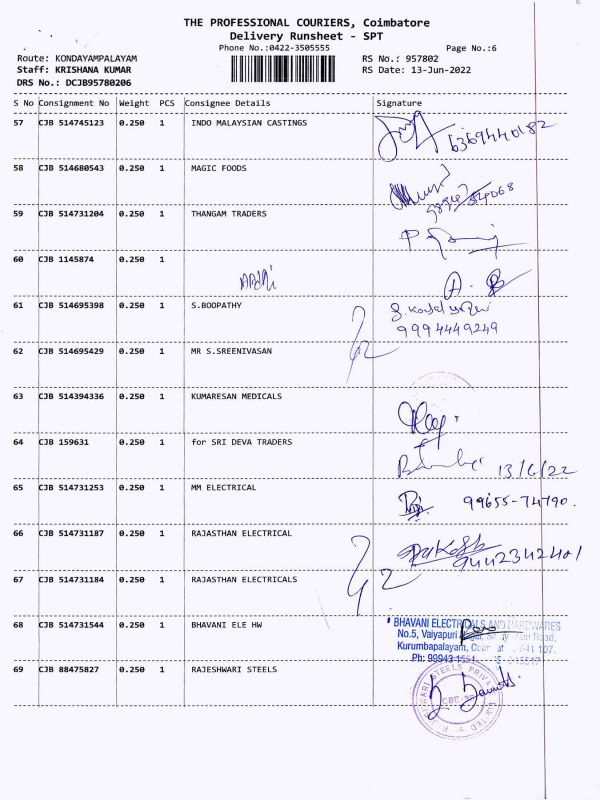 THE PROFESSIONAL COURIERS, Coimbatore
Delivery Runsheet - SPT
Phone No.:0422-3505555
Page No.:6
Route: KONDAYAMPALAYAM
RS No.: 957802
Staff: KRISHANA KUMAR
RS Date: 13-Jun-2022
DRS No.: DCJB95780206
S No Consignment No Weight PCS Consignee Details Signature
57 CJB 514745123 0.250 1 INDO MALAYSIAN CASTINGS
6369440182
58 CJB 514680543 0.250 1 MAGIC FOODS
59 CJB 514731204 0.250 1 THANGAM TRADERS
60 CJB 1145874 0.250 1
61 CJB 514695398 0.250 1 S.BOOPATHY
9994449249
62 CJB 514695429 0.250 1 MR S.SREENIVASAN
63 CJB 514394336 0.250 1 KUMARESAN MEDICALS
64 CJB 159631 0.250 1 for SRI DEVA TRADERS
13/6/22
65 CJB 514731253 0.250 1 MM ELECTRICAL
99655-74790.
66 CJB 514731187 0.250 1 RAJASTHAN ELECTRICAL
9442342401
67 CJB 514731184 0.250 1 RAJASTHAN ELECTRICALS
68 CJB 514731544 0.250 1 BHAVANI ELE HW
BHAVANI ELECTRICALS AND HARDWARES
No.5, Vaiyapuri Road,
Kurumbapalayam, 641 107.
Ph: 99943
69 CJB 88475827 0.250 1 RAJESHWARI STEELS